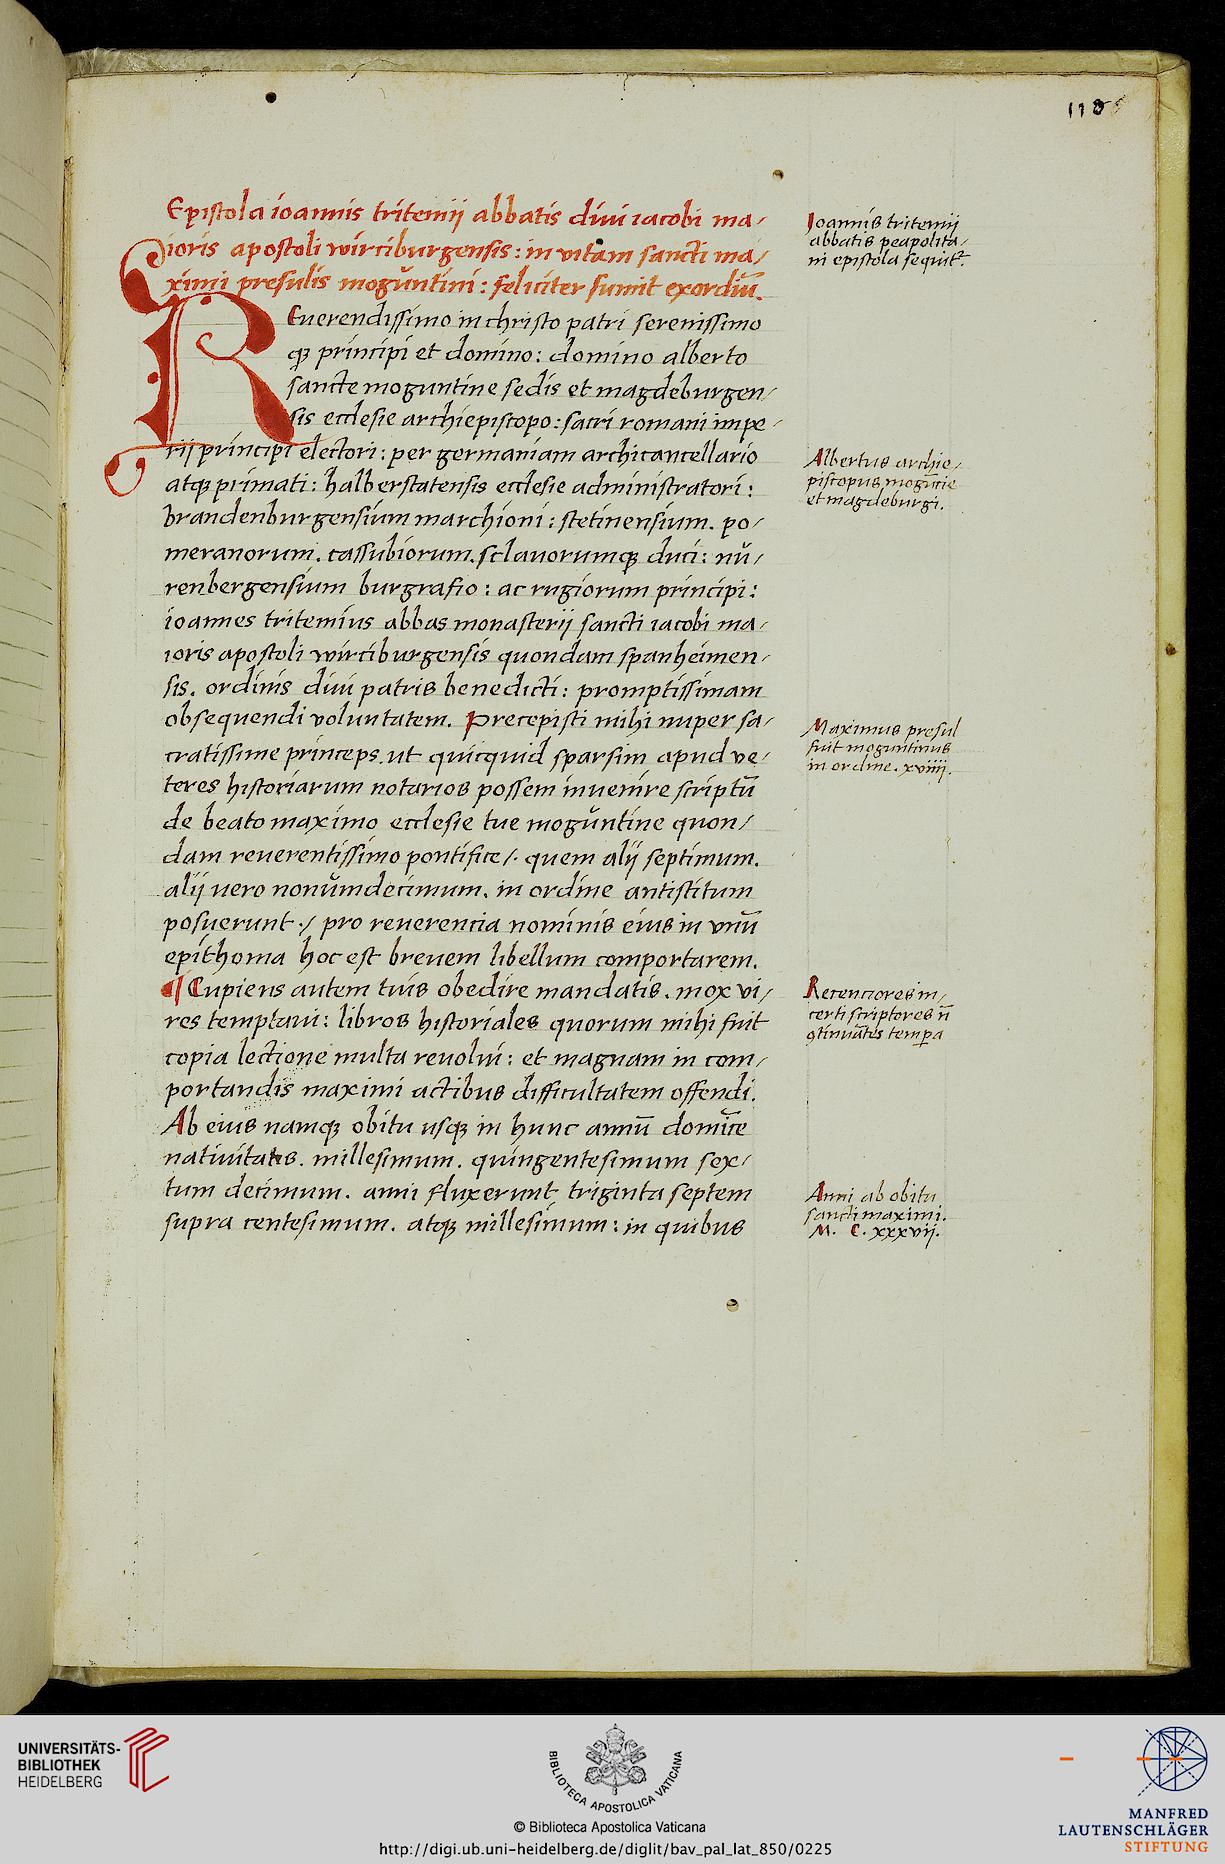 110
Epistola ioannis tritemij abbatis diui iacobi ma/
ioris apostoli wirciburgensis: in vitam sancti ma/
ximi presulis mogŭntini: feliciter sumit exordiū.
Reuerendissimo in christo patri serenissimo
qꝫ principi et domino: domino alberto
sancte moguntine sedis et magdeburgen/
sis ecclesie archiepiscopo: sacri romani impe/
rij principi electori: per germaniam archicancellario
atqꝫ primati: halberstatensis ecclesie administratori:
brandenburgensium marchioni: stetinensium. po/
meranorum. cassubiorum. sclauorumqꝫ duci: nŭ/
renbergensium burgrafio: ac rugiorum principi:
ioannes tritemius abbas monasterij sancti iacobi ma/
ioris apostoli wirciburgensis quondam spanheimen/
sis. ordinis diui patris benedicti: promptissimam
obsequendi voluntatem. Precepisti mihi nuper sa/
cratissime princeps. ut quicquid sparsim apud ve/
teres historiarum notarios possem inuenire scriptū
de beato maximo ecclesie tue mogŭntine quon/
dam reuerentissimo pontifice/. quem alij septimum.
alij vero nonŭmdecimum. in ordine antistitum
posuerunt ./ pro reuerentia nominis eius in vnū
epithoma hoc est breuem libellum comportarem.
¶ Cupiens autem tuis obedire mandatis. mox vi/
res temptaui: libros historiales quorum mihi fuit
copia lectione multa reuolui: et magnam in com/
portandis maximi actibus difficultatem offendi.
Ab eius namqꝫ obitu usqꝫ in hunc annū dominice
natiuitatis. millesimum. quingentesimum sex/
tum decimum. anni fluxerunt triginta septem
supra centesimum. atqꝫ millesimum: in quibus
Joannis tritemij
abbatis peapolita/
ni epistola sequit᷑.
Albertus archie/
piscopus mogūtie
et magdeburgi.
Maximus presul
fuit moguntinus
in ordine. xviiij.
Recenciores in/
certi scriptores n̄
ꝯtinuātes tempa
Anni ab obitu
sancti maximi.
M. C. xxxvij.
UNIVERSITÄTS-
BIBLIOTHEK
HEIDELBERG
BIBLIOTECA APOSTOLICA VATICANA
© Biblioteca Apostolica Vaticana
http://digi.ub.uni-heidelberg.de/diglit/bav_pal_lat_850/0225
MANFRED
LAUTENSCHLÄGER
STIFTUNG